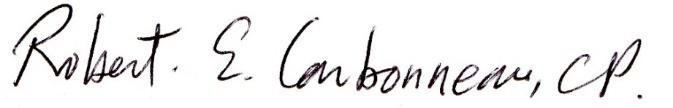 Robert. E. Carbonneau, CP.